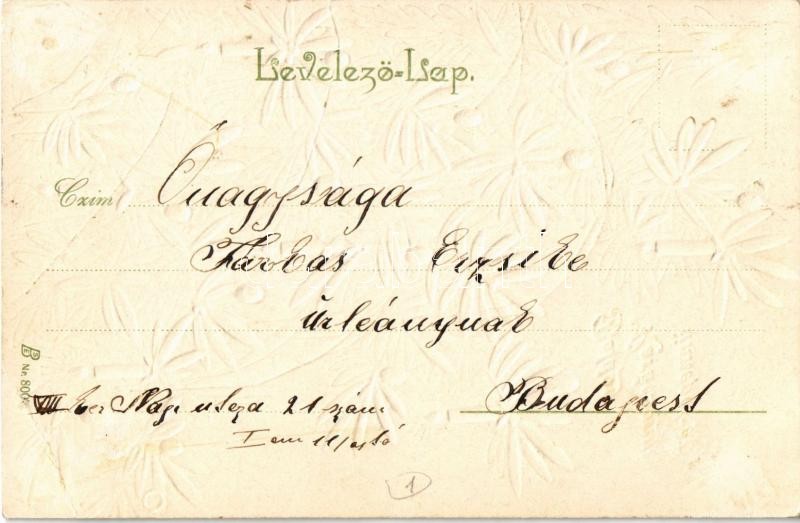 Levelező=Lap.
Czim Önagysága
Farkas Erzsike
úrleánynak
Budapest
VIII ker Nagy utcza 21 szám
I em 11 ajtó
Nr. 800
1